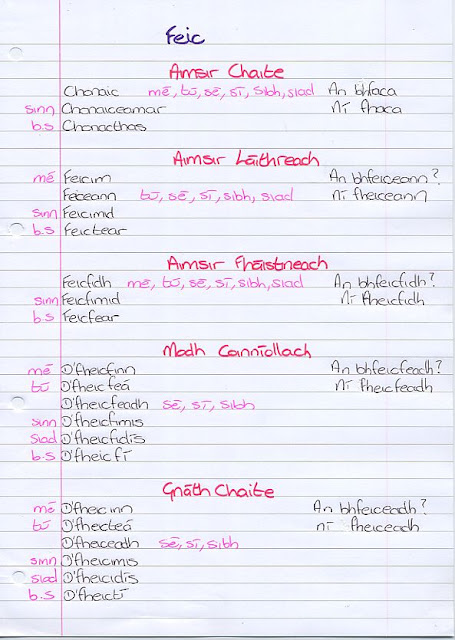 Feic
Amsir Chaite
Chonaic mé, tú, sé, sí, sibh, siad An bhfaca
sinn Chonaiceamar Ní fhaca
b.s Chonacthas
Aimsir Láithreach
mé Feicim An bhfeiceann?
Feceann tú, sé, sí, sibh, siad ní fheiceann
sinn Feicimid
b.s Feictear
Aimsir Fháistineach
Feicfidh mé, tú, sé, sí, sibh, siad An bhfeicfidh?
sinn Feicfimid Ní fheicfidh
b.s Feicfear
Modh Coinníollach
mé D'fheicfinn An bhfeicfeadh?
tú D'fheicfeá ní fheicfeadh
D'fheicfeadh sé, sí, sibh
sinn D'fheicfimis
siad D'fheicfidís
b.s D'fheicfí
Gnáth Chaite
mé D'fheicinn An bhfeiceadh?
tú D'fheicteá ní fheiceadh
D'fheiceadh sé, sí, sibh
sinn D'fheicimis
siad D'fheicidís
b.s D'fheictí